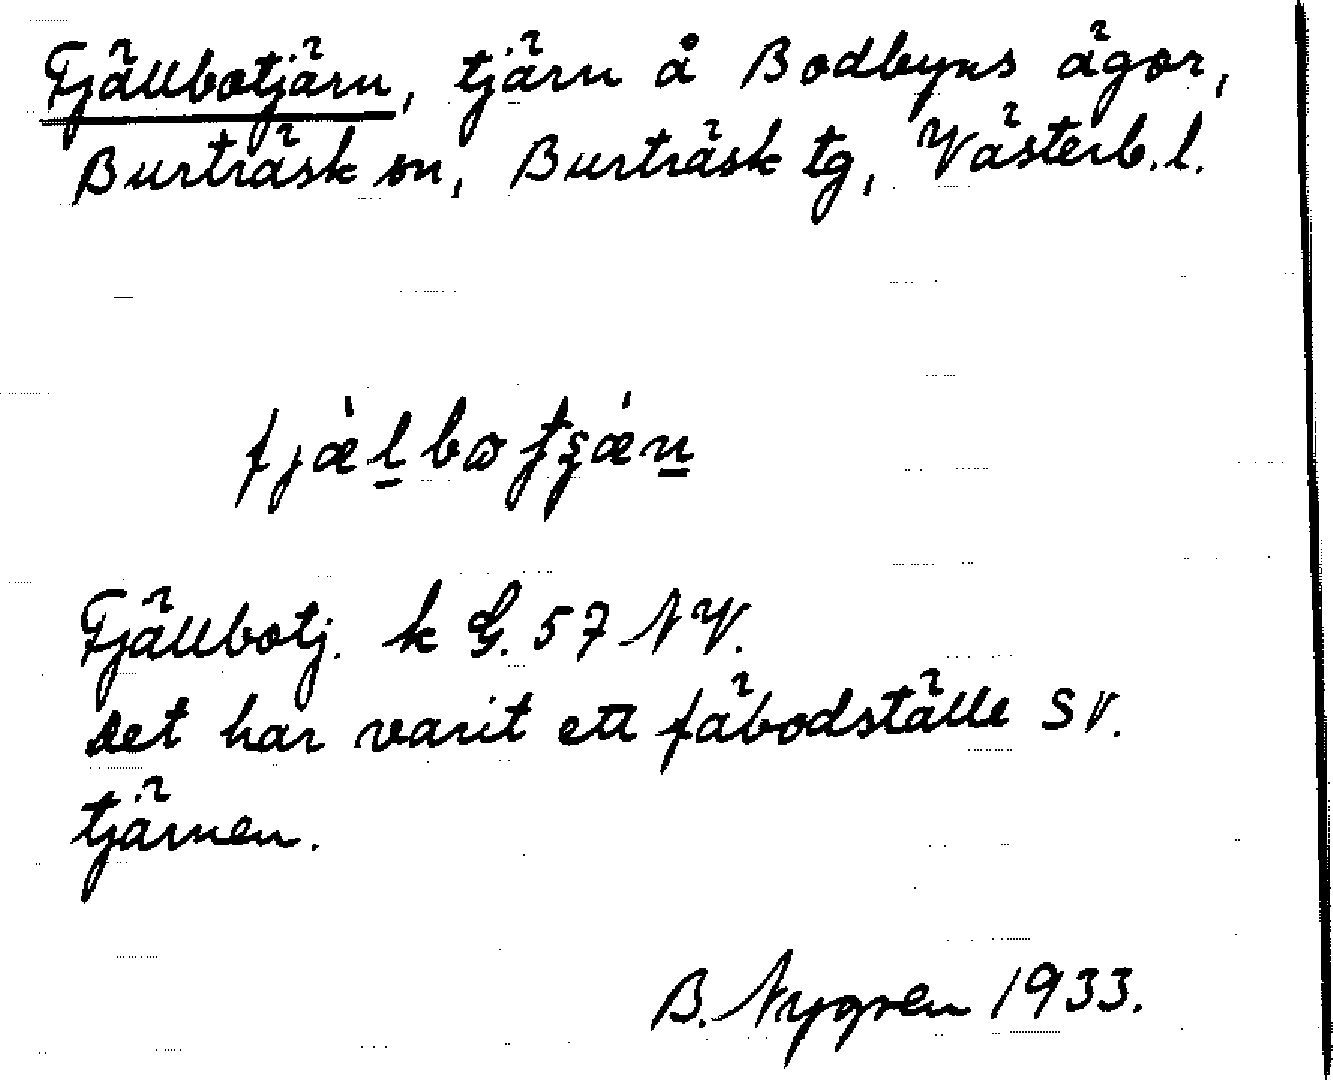 Fjällbotjärn, tjärn å Bodbyns ägor,
Burträsk sn, Burträsk tg, Västerb. l.
Fjällbotj. k G. 57 NV.
det har varit ett fäbodställe SV.
tjärnen.
B. Nygren 1933.